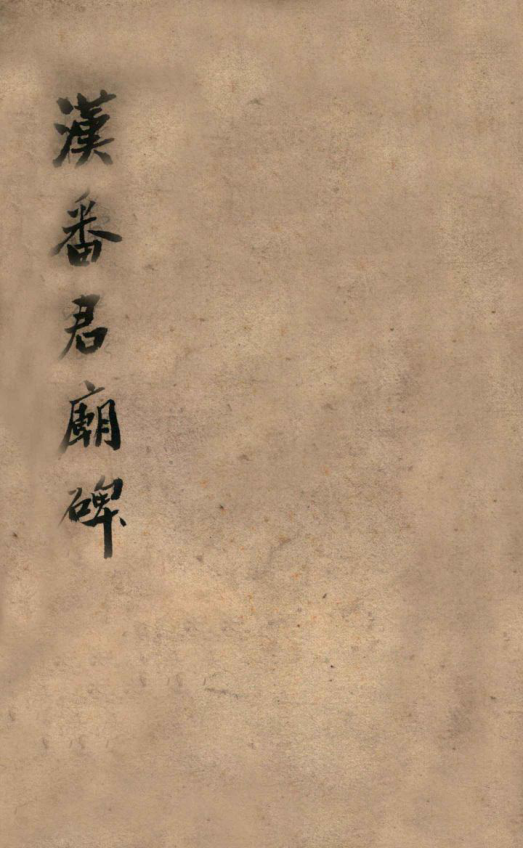 漢番君廟碑